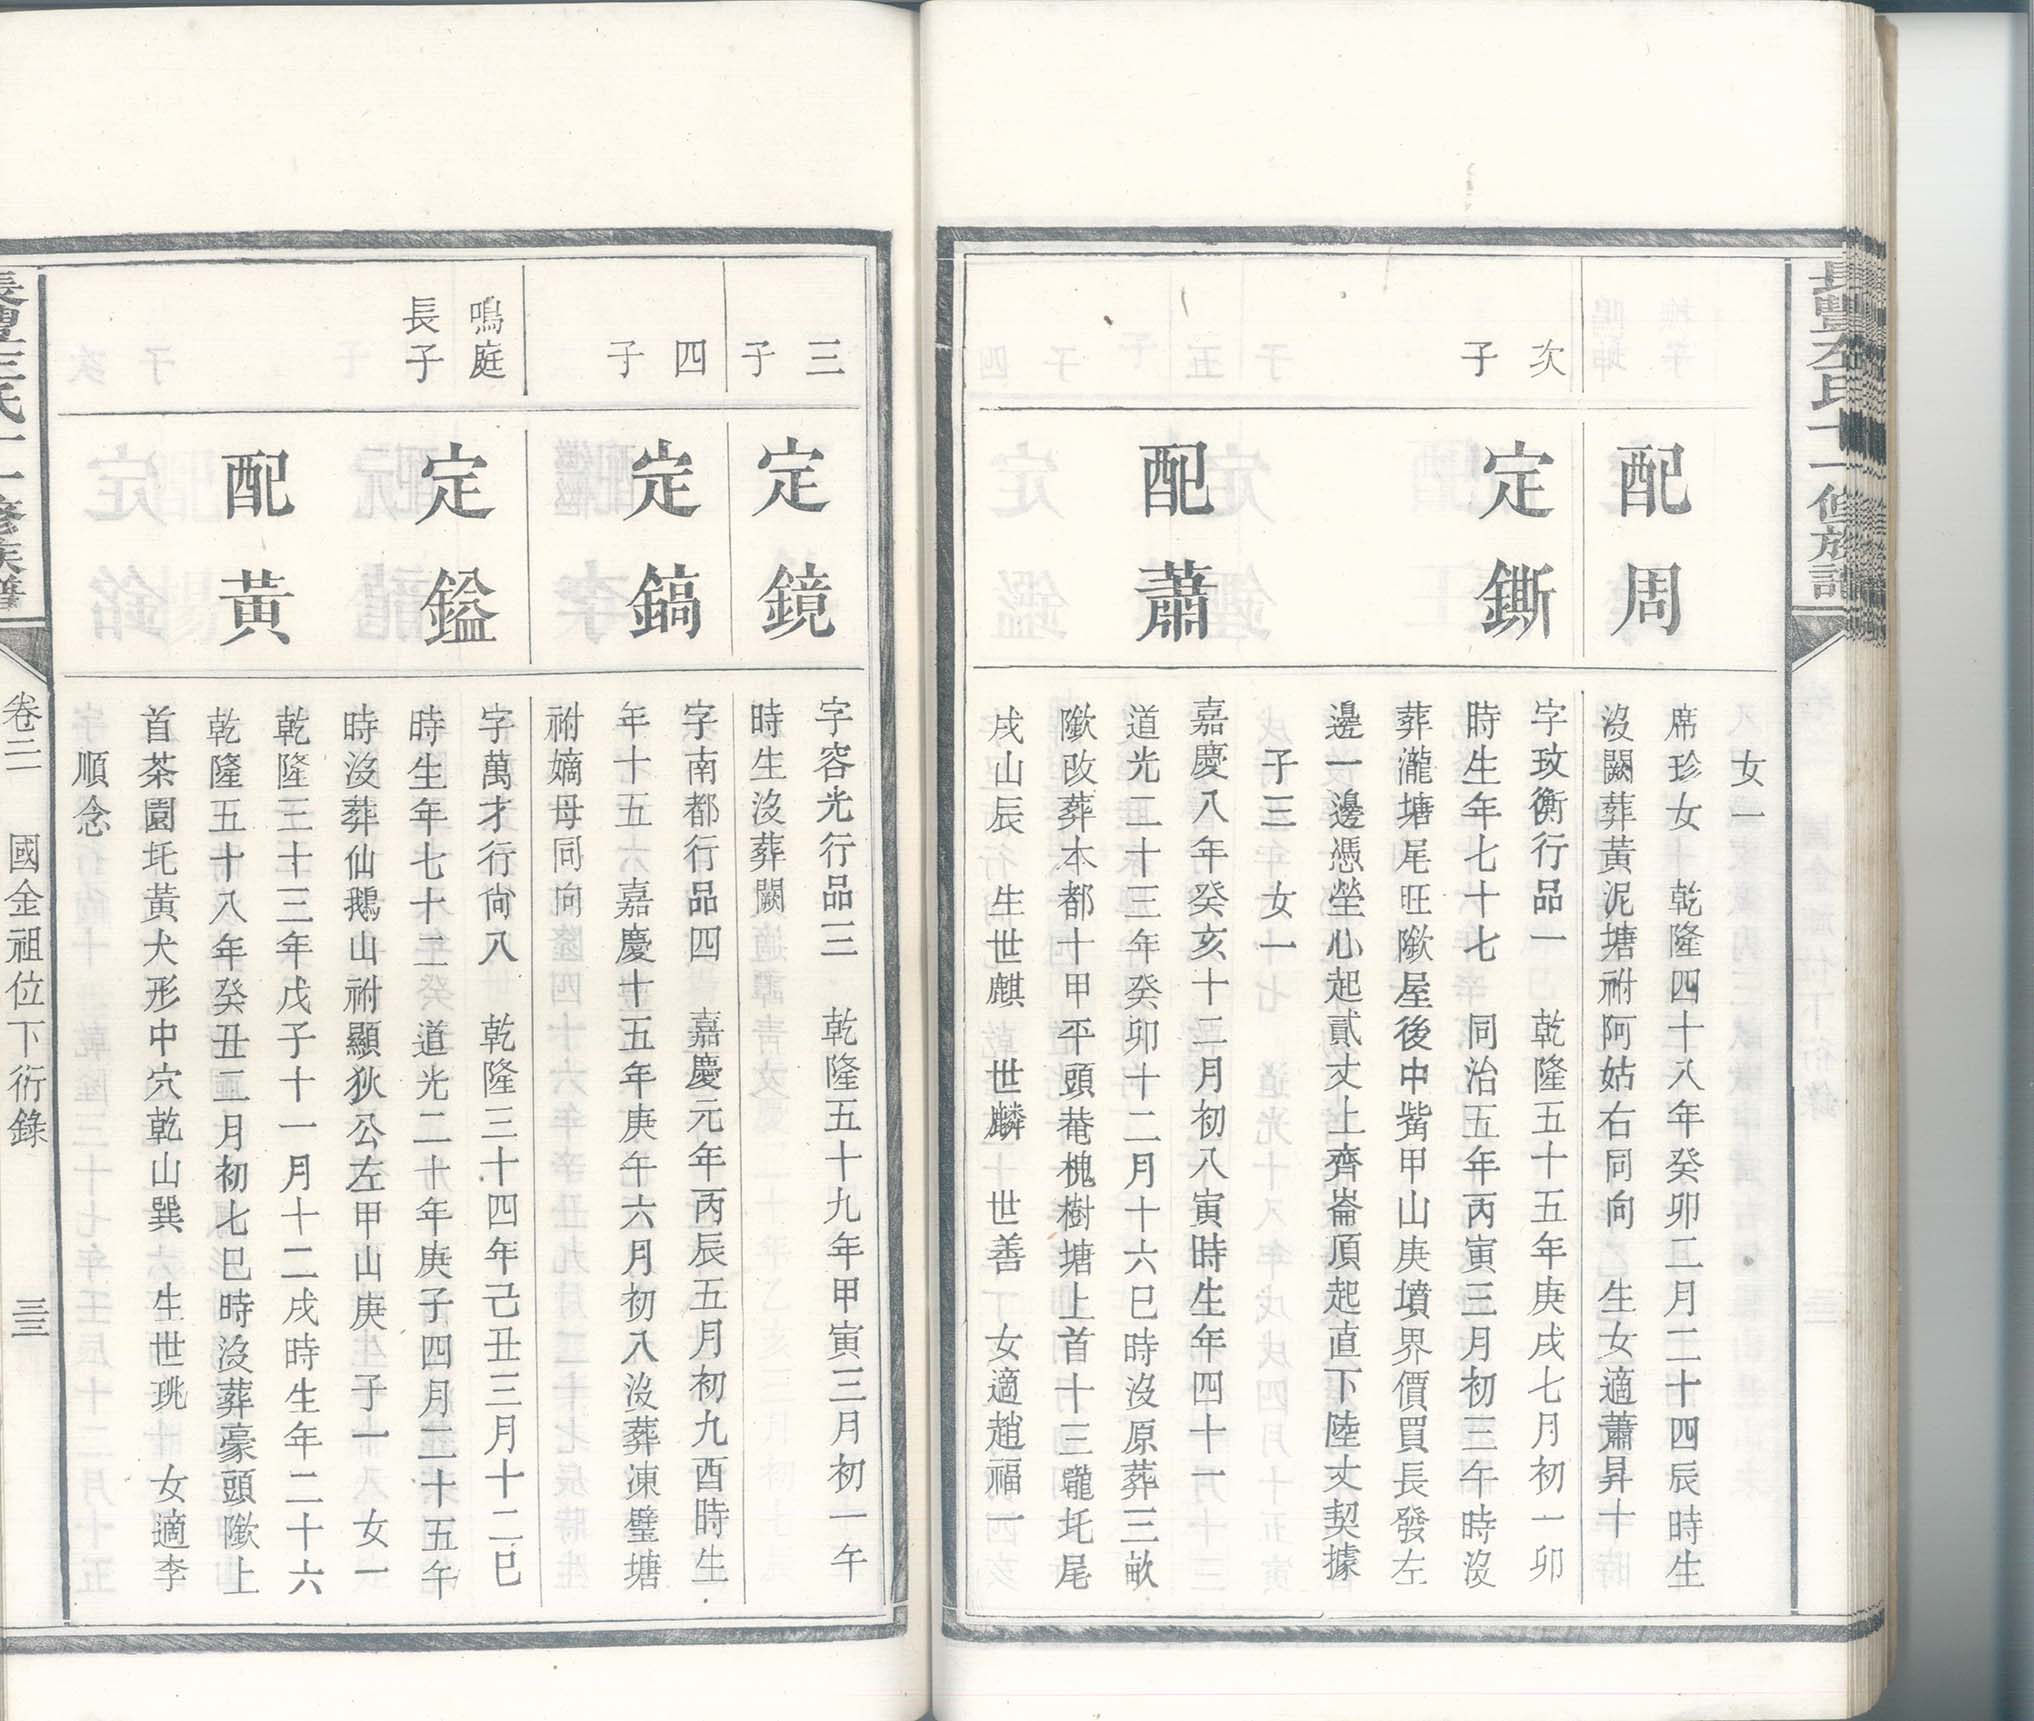 長豐左氏十一修族譜
女一
配周
席珍女　乾隆四十八年癸卯二月二十四辰時生
沒闕葬黃泥塘祔阿姑右同向　生女適蕭昇十
次子
定鐁
字玫衡行品一　乾隆五十五年庚戌七月初一卯
時生年七十七　同治五年丙寅三月初三午時沒
葬瀧塘尾旺歘屋後中嘴甲山庚墳界價買長發左
邊一邊憑塋心起貳丈上齊崙頂起直下陸丈契據
子三　女一
配蕭
嘉慶八年癸亥十二月初八寅時生年四十一
道光二十三年癸卯十二月十六巳時沒原葬三畝
改葬本都十甲平頭菴槐樹塘上首十三壠圫尾
戌山辰　生世麒　世麟　世善　女適趙福一
三子
定鏡
字容光行品三　乾隆五十九年甲寅三月初一午
時生沒葬闕
四子
定鎬
字南都行品四　嘉慶元年丙辰五月初九酉時生
年十五　嘉慶十五年庚午六月初八沒葬凍璧塘
祔嫡母同向
鳴庭長子
定鎰
字萬才行尙八　乾隆三十四年己丑三月十二巳
時生年七十二　道光二十年庚子四月二十五午
時沒葬仙鵝山祔顯狄公左甲山庚　子一　女一
配黃
乾隆三十三年戊子十一月十二戌時生年二十六
乾隆五十八年癸丑二月初七巳時沒葬豪頭上
首茶園圫黃犬形中穴乾山巽　生世珧　女適李
順念
長豐左氏十一修族譜
卷二　國金祖位下衍錄　三三